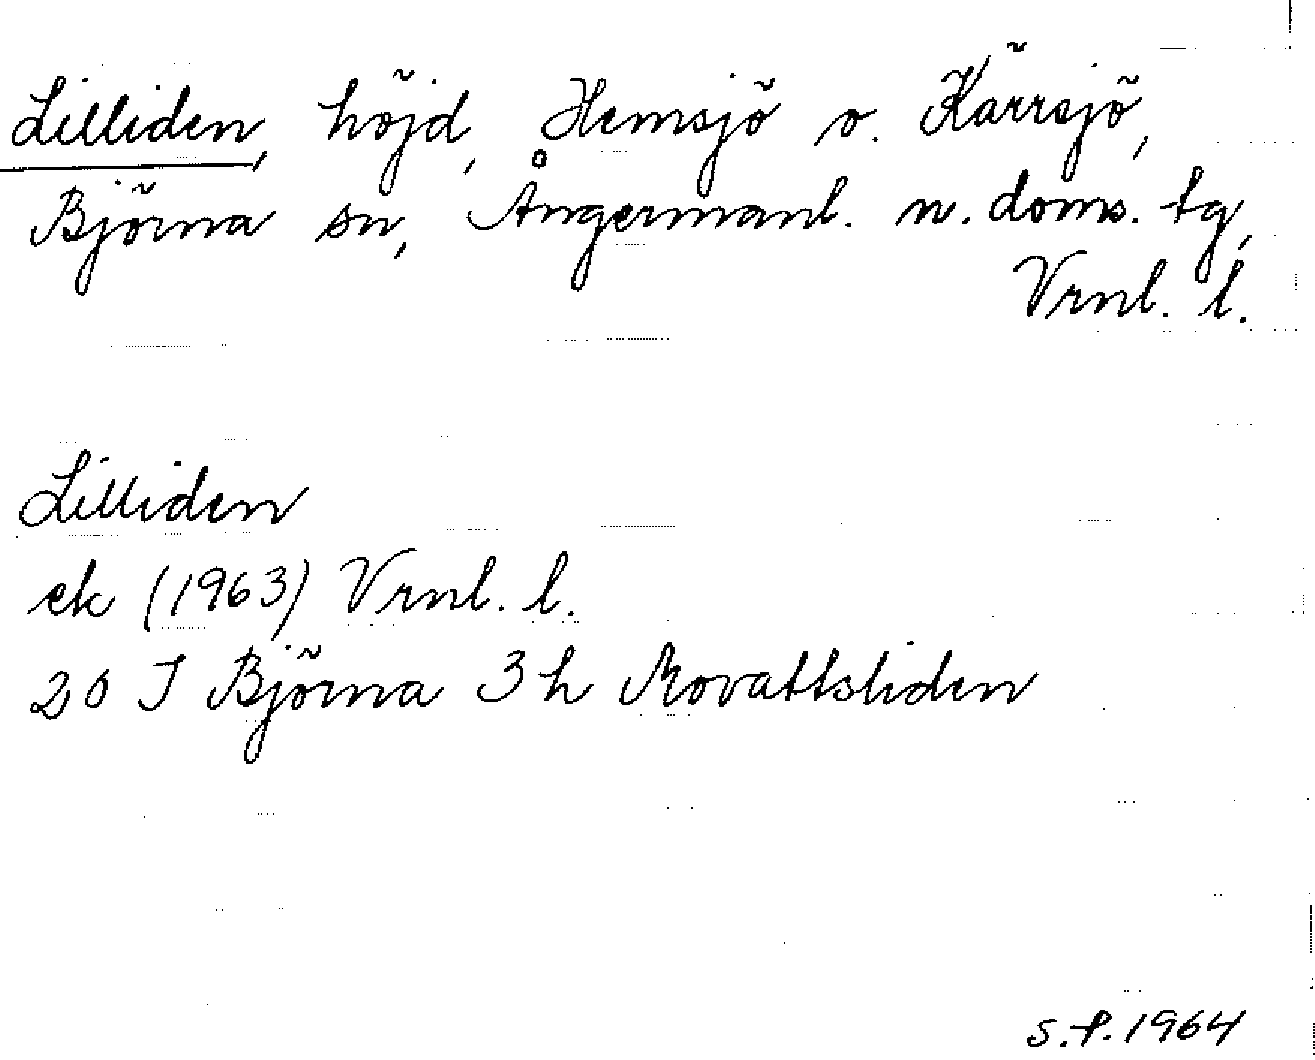 Lilliden, höjd, Hemsjö o. Kärrsjö,
Björna sn, Ångermanl. n. doms. tg,
Vrnl. l.
Lilliden
ek (1963) Vrnl. l.
20 I Björna 3 h Movattsliden
S.F. 1964